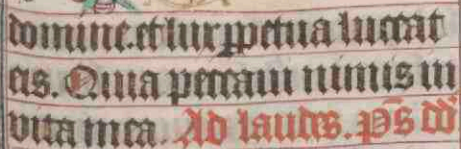 domine. et lux ꝑpetua luceat
eis. Quia peccaui nimis in
vita mea. Ad laudes. p̄s dd̄